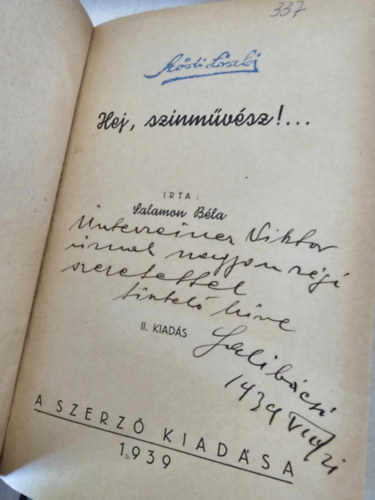 337
Hej, szinművész!...
IRTA:
Salamon Béla
Unterreiner Viktor
úrnak nagyon régi
szeretettel
tisztelő híve
II. KIADÁS
Salibácsi
1939
A SZERZŐ KIADÁSA
1939